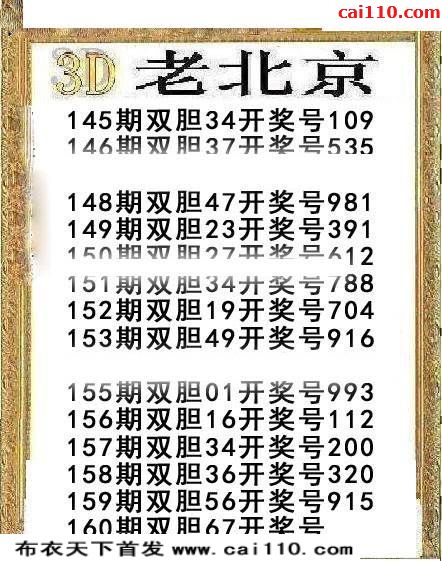 cai110.com
3D 老北京
145期双胆34开奖号109
146期双胆37开奖号535
148期双胆47开奖号981
149期双胆23开奖号391
150期双胆27开奖号612
151期双胆34开奖号788
152期双胆19开奖号704
153期双胆49开奖号916
155期双胆01开奖号993
156期双胆16开奖号112
157期双胆34开奖号200
158期双胆36开奖号320
159期双胆56开奖号915
160期双胆67开奖号
布衣天下首发 www.cai110.com